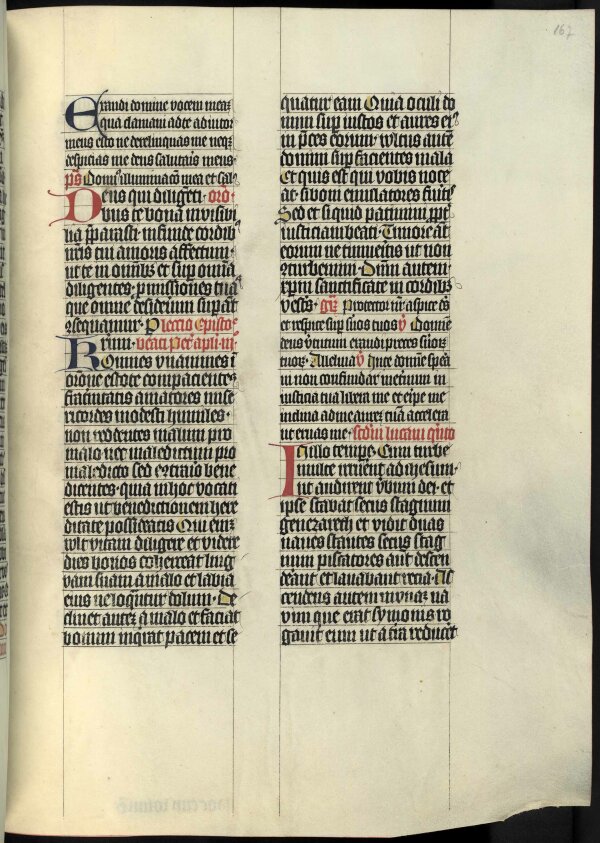 167
Exaudi domine vocem meā
qua clamavi ad te adiutor
meus esto ne derelinquas me neqꝫ
despicias me deus salutaris meus
ps Domī illuminatō mea et sal
Deus qui diligēti orō
bus te bona invisibi
lia pparasti infunde cordibꝫ
nr̄is tui amoris affectum
ut te in omībꝫ et sup omīa
diligentes pmissiones tuas
que omne desideriū supāt
9sequamur P lectio Epistole
Rrium beati Petri apl̄i iij
Omnes unanimes ī
oracione estote compacientes
fraternitatis amatores mise
ricordes modesti humiles
non reddentes malum pro
malo nec maledictum pro
maledicto sed econtrario bene
dicentes quia in hoc vocati
estis ut benedictionem here
ditate possideatis Qui enim
vult vitam diligere et videre
dies bonos cohereeat ling
vam suam a malo et labia
eius ne loquntur dolum De
clinet autē a malo et faciat
bonum inqirat pacem et se
quatur eam Quia oculi do
mini sup iustos et aures ei9
in pces eorum vultus autē
domini sup facientes mala
Et quis est qui vobis noce
at si boni emulatores fuitis
Sed et si quid patimini ppt
iusticiam beati Timorē aūt
eorum ne timueritis ut non
9turbemini Dn̄m autem
xpm sanctificate in cordibꝫ
vestris gr Protector nr̄ aspice ds
et respice sup suos tuos v Domine
deus virtutum exaudi preces suorꝫ
tuorꝫ Alleluia v In te domine spera
vi non confundar ineternum in
iusticia tua libera me et eripe me
inclina ad me aurē tuā accelera
ut eruas me scdm lucam qinto
In illo tempe Cum turbe
multe irruerēt ad ihesum
ut audirent vbum dei et
ipse stabat secus stagnum
genezareth et vidit duas
naves stantes secus stag
num piscatores aut descen
derant et lavabant recia As
cendens autem in unā na
vim que erat symonis ro
gavit eum ut a tra reducēt